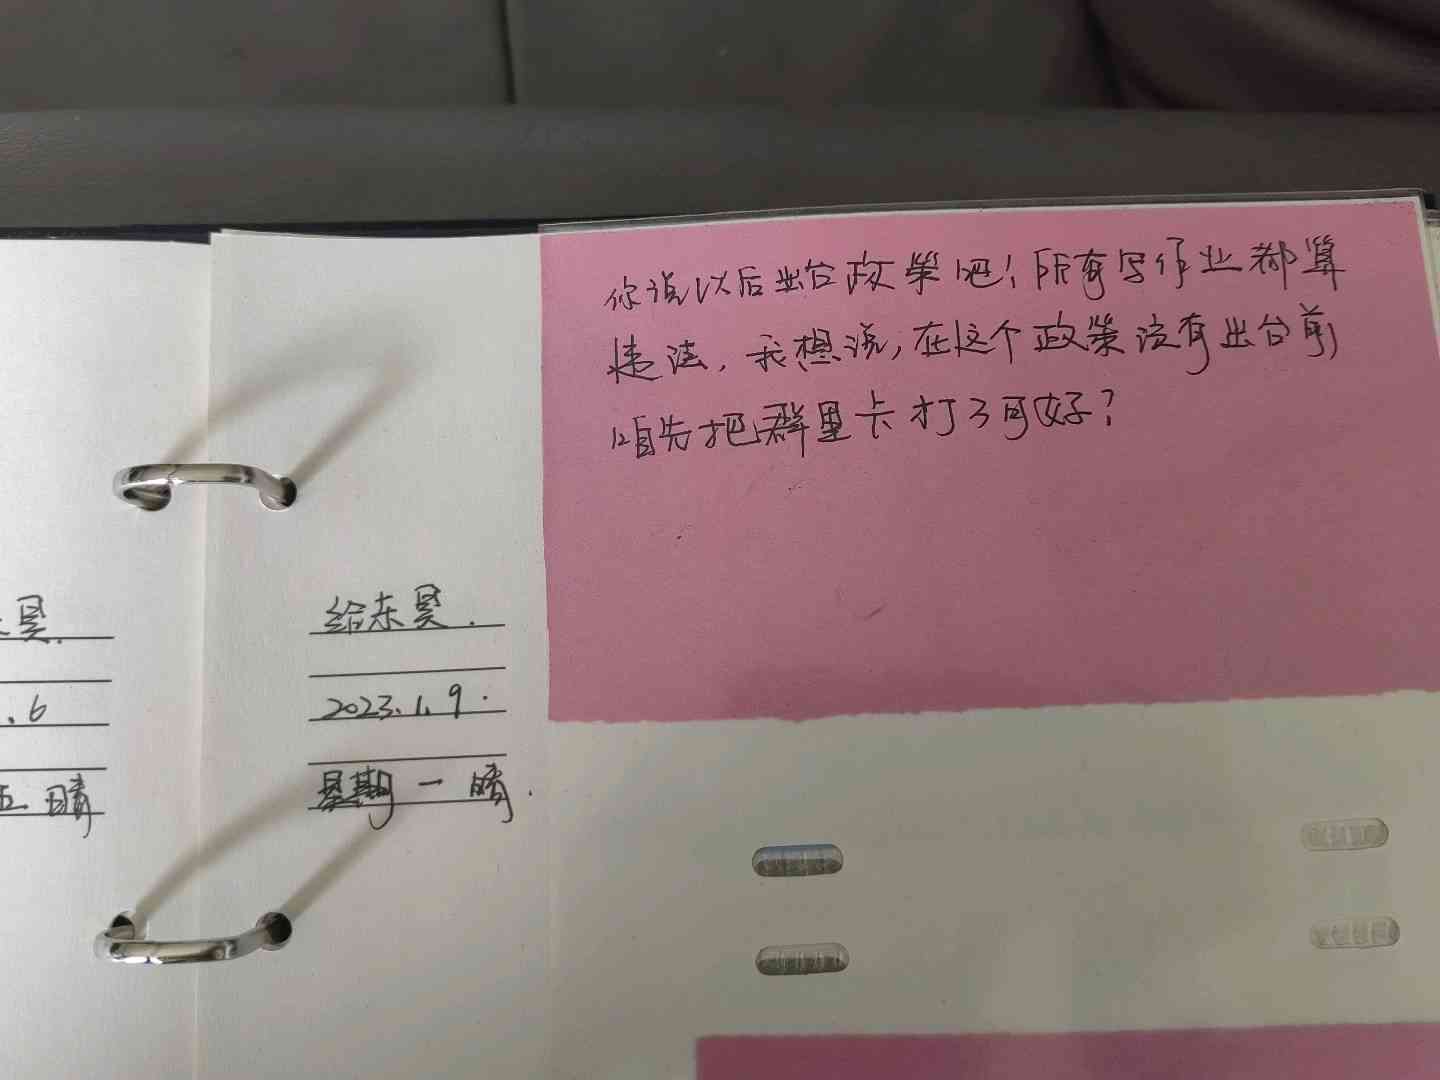 你说以后出台政策吧！所有写作业都算
违法，我想说，在这个政策没有出台前，
咱先把群里卡打了可好？
昊.
给东昊.
.6
2023.1.9.
五 晴
星期一 晴.